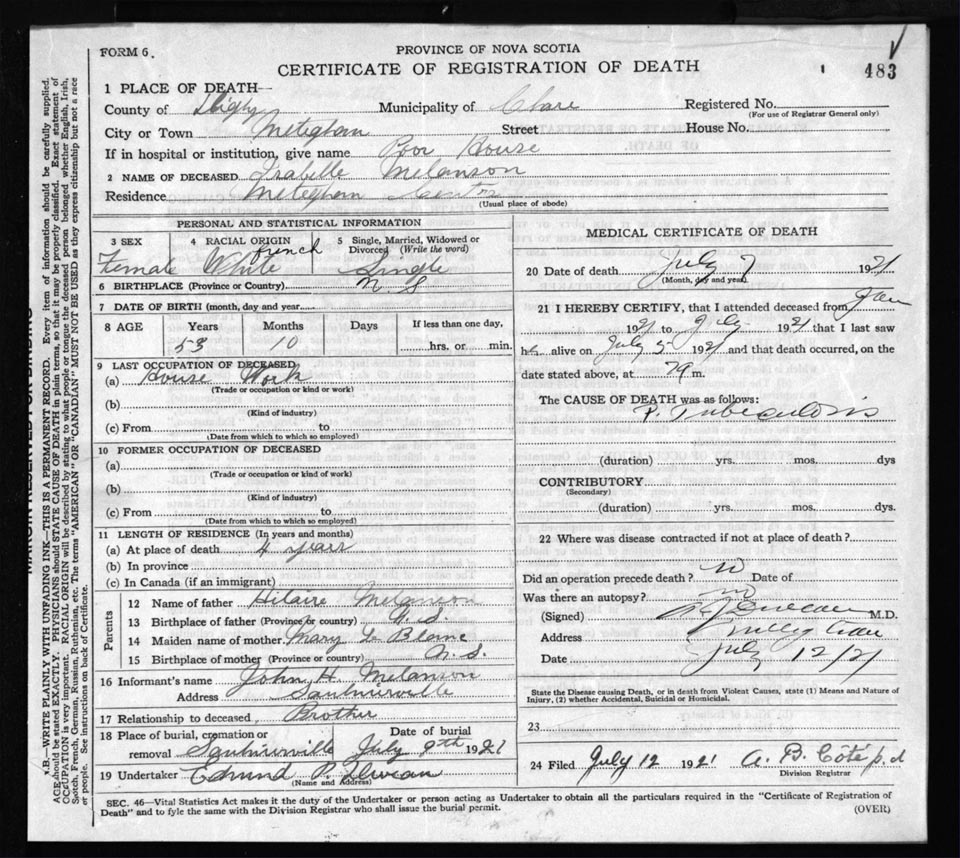 FORM 6.
PROVINCE OF NOVA SCOTIA
CERTIFICATE OF REGISTRATION OF DEATH
483
1 PLACE OF DEATH—
County of Digby Municipality of Clare Registered No.
(For use of Registrar General only)
City or Town Meteghan Street House No.
If in hospital or institution, give name Poor House
2 NAME OF DECEASED Isabelle Melanson
Residence Meteghan Centre
(Usual place of abode)
PERSONAL AND STATISTICAL INFORMATION
3 SEX 4 RACIAL ORIGIN 5 Single, Married, Widowed or Divorced (Write the word)
Female White french Single
6 BIRTHPLACE (Province or Country) N S
7 DATE OF BIRTH (month, day and year
8 AGE Years Months Days If less than one day,
53 10 hrs. or min.
9 LAST OCCUPATION OF DECEASED
(a) House Work
(Trade or occupation or kind or work)
(b)
(Kind of industry)
(c) From to
(Date from which to which so employed)
10 FORMER OCCUPATION OF DECEASED
(a)
(Trade or occupation or kind of work)
(b)
(Kind of industry)
(c) From to
(Date from which to which so employed)
11 LENGTH OF RESIDENCE (In years and months)
(a) At place of death 4 years
(b) In province
(c) In Canada (if an immigrant)
Parents
12 Name of father Hilaire Melanson
13 Birthplace of father (Province or country) N.S.
14 Maiden name of mother Mary
15 Birthplace of mother (Province or country) N.S.
16 Informant's name John H. Melanson
Address Saulnierville
17 Relationship to deceased Brother
18 Place of burial, cremation or Date of burial
removal Saulnierville July 9th 1921
19 Undertaker Edmund P.
(Name and Address)
MEDICAL CERTIFICATE OF DEATH
20 Date of death July 7 1921
(Month, day and year)
21 I HEREBY CERTIFY, that I attended deceased from Jan
1921 to July 1921 that I last saw
her alive on July 5 1921 and that death occurred, on the
date stated above, at m.
The CAUSE OF DEATH was as follows:
P. Tuberculosis
(duration) yrs. mos. dys
CONTRIBUTORY
(Secondary)
(duration) yrs. mos. dys.
22 Where was disease contracted if not at place of death?
Did an operation precede death? no Date of
Was there an autopsy? no
(Signed) M.D.
Address
Date July 12/21
State the Disease causing Death, or in death from Violent Causes, state (1) Means and Nature of
Injury, (2) whether Accidental, Suicidal or Homicidal.
23
24 Filed July 12 1921 A. B. Côté p.d
Division Registrar
SEC. 46—Vital Statistics Act makes it the duty of the Undertaker or person acting as Undertaker to obtain all the particulars required in the "Certificate of Registration of
Death" and to fyle the same with the Division Registrar who shall issue the burial permit.
(OVER)
N.B.—WRITE PLAINLY WITH UNFADING INK—THIS IS A PERMANENT RECORD. Every item of information should be carefully supplied.
AGE should be stated EXACTLY. PHYSICIANS should STATE CAUSE OF DEATH in plain terms, so that it may be properly classified. Exact statement of
OCCUPATION is very important. RACIAL ORIGIN will be described by stating to what people or tongue the deceased person belonged whether English, Irish,
Scotch, French, German, Russian, Ruthenian, etc. The terms "AMERICAN" or "CANADIAN" MUST NOT BE USED as they express citizenship but not a race
or people. See instructions on back of Certificate.